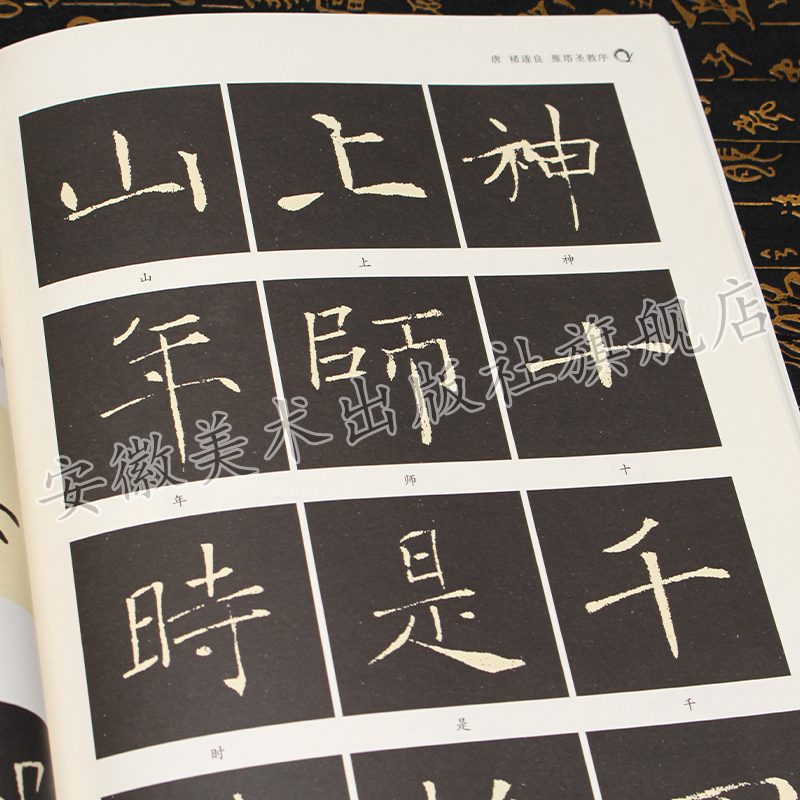 唐 褚遂良 雁塔圣教序
山 上 神
山 上 神
年 師 十
年 师 十
時 是 千
时 是 千
安徽美术出版社旗舰店